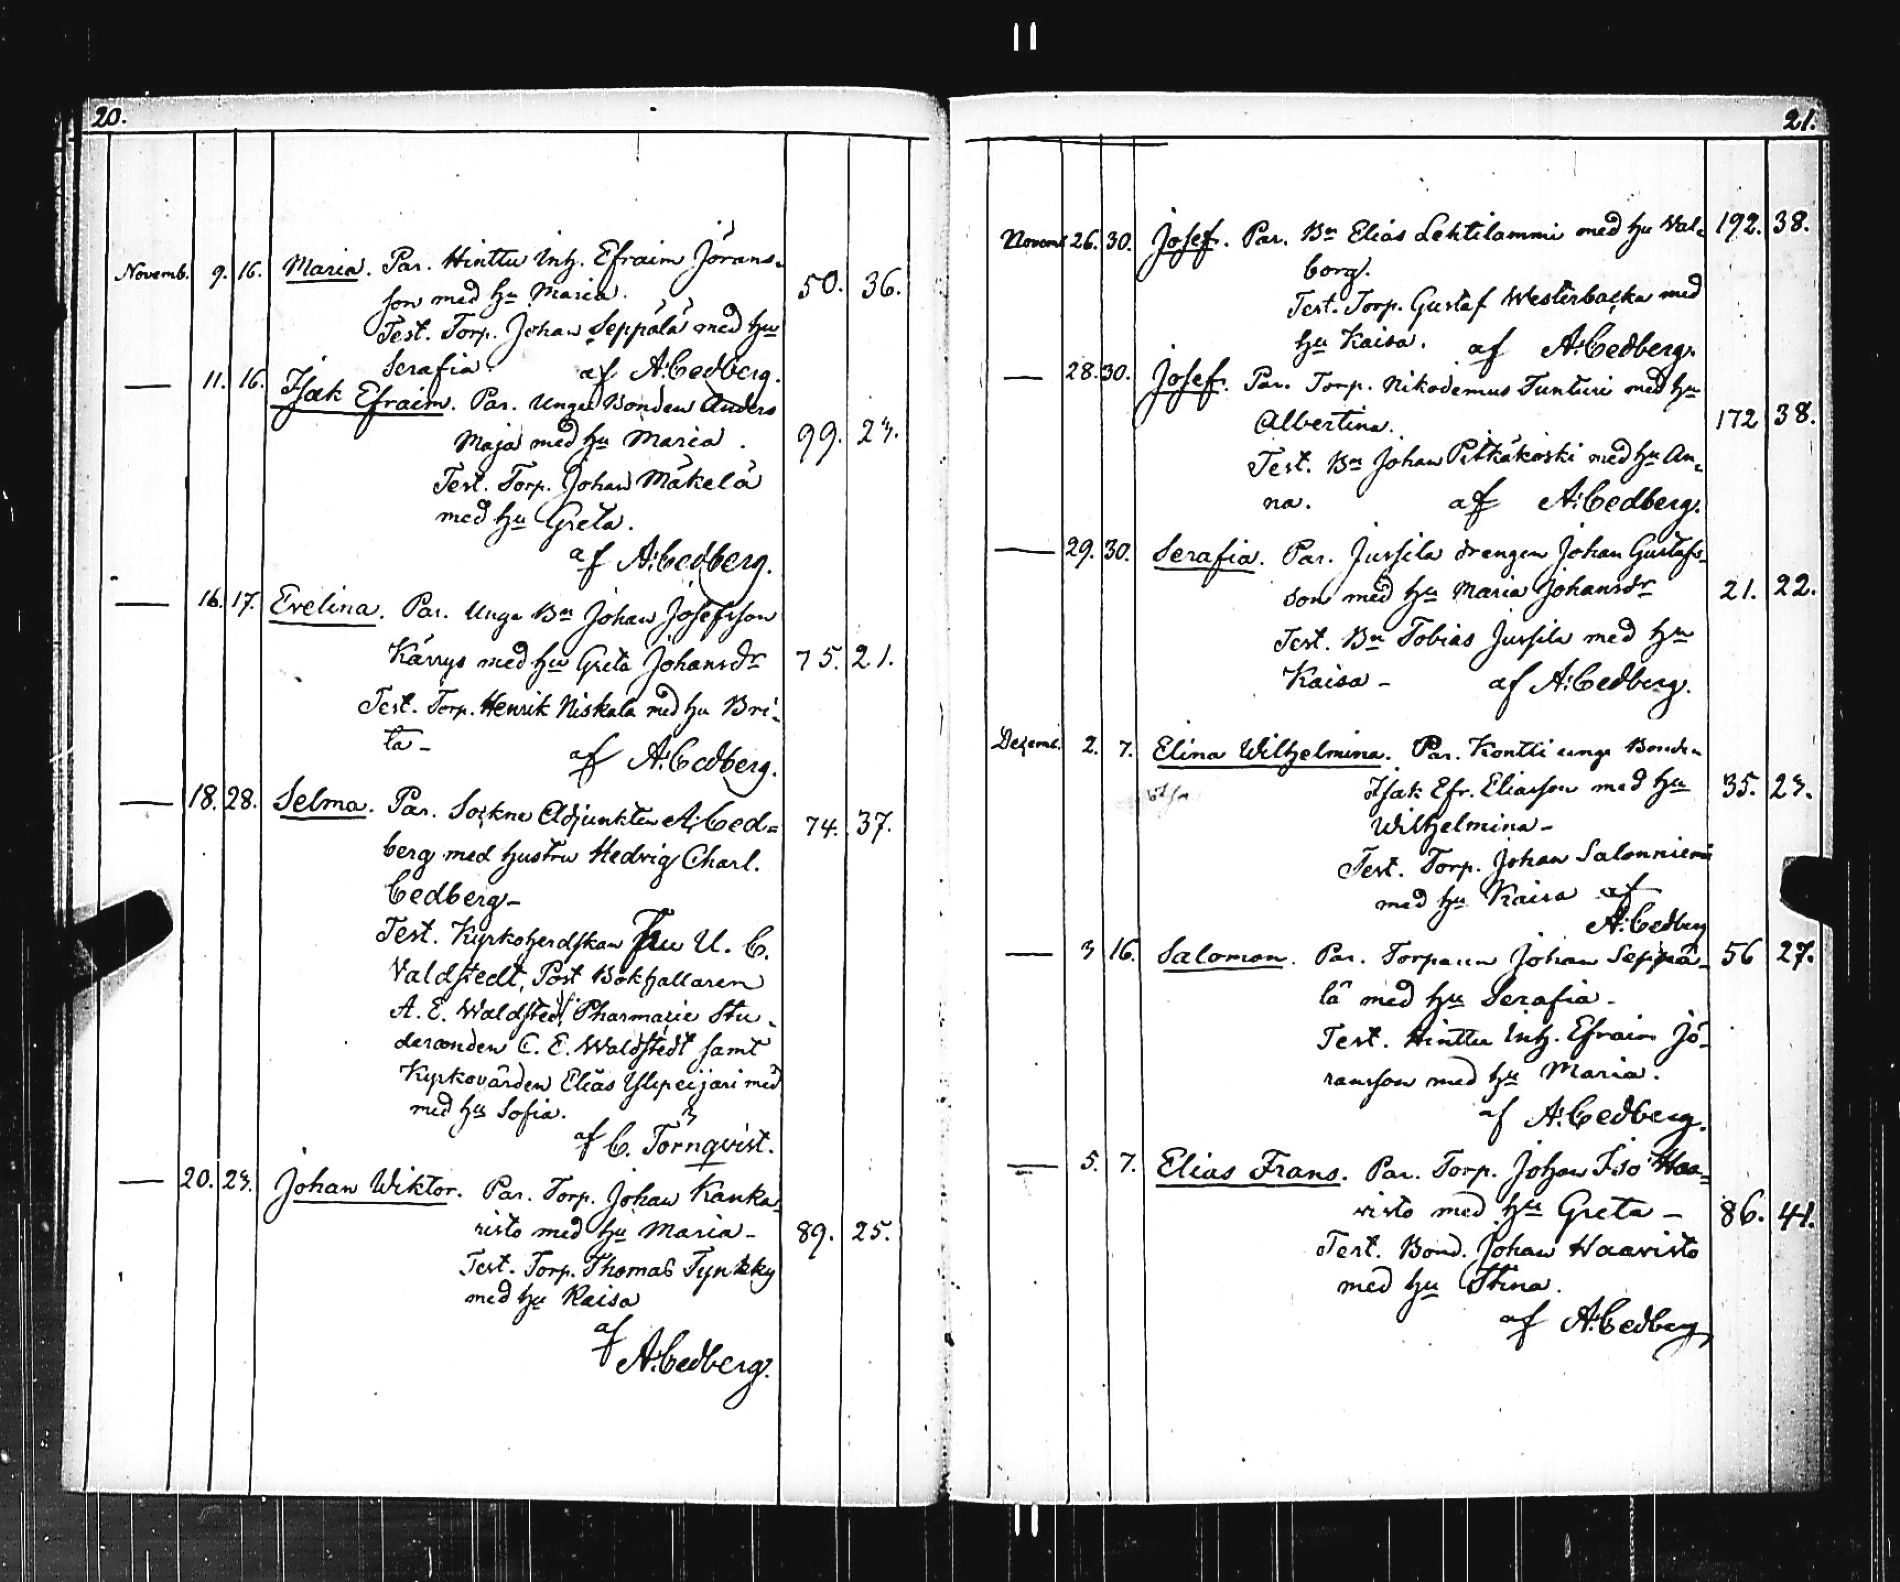 20.
Novemb. 9. 16. Maria. Par. Hinttu Inh. Efraim Jörans-
son med hu Maria. 50. 36.
Test. Torp. Johan Seppälä med hu
Serafia. af A. Cedberg.
— 11. 16. Isak Efraim. Par. Unga Bonden Anders
Maja med hu Maria. 99. 24.
Test. Torp. Johan Mäkelä
med hu Greta.
af A. Cedberg.
— 16. 17. Evelina. Par. Unga Bn Johan Josefsson
Kärrys med hu Greta Johansdr 75. 21.
Test. Torp. Henrik Niskala med hu Bri-
ta –
af A. Cedberg.
— 18. 28. Selma. Par. Sockne Adjunkten A. Ced= 74. 37.
berg med hustru Hedvig Charl.
Cedberg –
Test. Kyrkoherdskan Fru U. C.
Valdstedt, Post Bokhållaren
A. E. Waldstedt, Pharmacie Stu-
deranden C. E. Waldstedt samt
Kyrkovärden Elias Ylipeijari med
med hu Sofia.
af C. Törnqvist.
— 20. 24. Johan Wiktor. Par. Torp. Johan Kanka-
risto med hu Maria – 89. 25.
Test. Torp. Thomas Tynkky
med hu Kaisa
af
A. Cedberg.
21.
Novemb. 26. 30. Josef. Par. Bn Elias Lehtilammi med hu Val- 192. 38.
borg.
Test. Torp. Gustaf Westerbacka med
hu Kaisa. af A. Cedberg.
— 28. 30. Josef. Par. Torp. Nikodemus Tunturi med hu
Albertina. 172 38.
Test. Bn Johan Pitkäkoski med hu An-
na. af A. Cedberg.
— 29. 30. Serafia. Par. Jussila drengen Johan Gustafs-
son med hu Maria Johansdr 21. 22.
Test. Bn Tobias Jussila med hu
Kaisa – af A. Cedberg.
Dezemb. 2. 7. Elina Wilhelmina. Par. Kontti unga Bonden
Isak Efr. Eliasson med hu 35. 24.
Wilhelmina –
Test. Torp. Johan Salonniemi
med hu Kaisa af
A. Cedberg
— 3 16. Salomon. Par. Torparen Johan Seppä- 56 27.
lä med hu Serafia –
Test. Hinttu Inh. Efraim Jö-
ransson med hu Maria.
af A. Cedberg.
— 5. 7. Elias Frans. Par. Torp. Johan Iso Haa-
visto med hu Greta – 86. 41.
Test. Bond. Johan Haavisto
med hu Stina.
af A. Cedberg